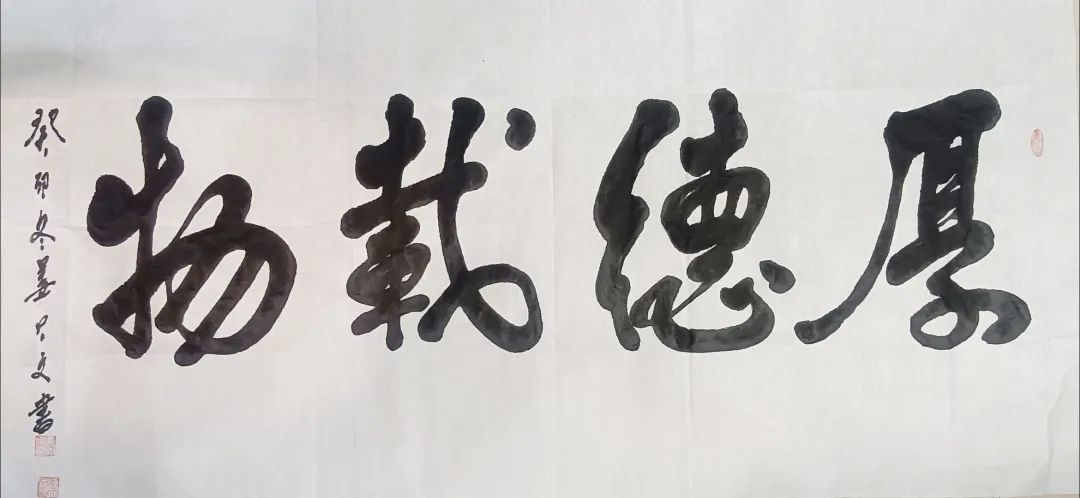 厚德载物
癸卯冬姜早文書